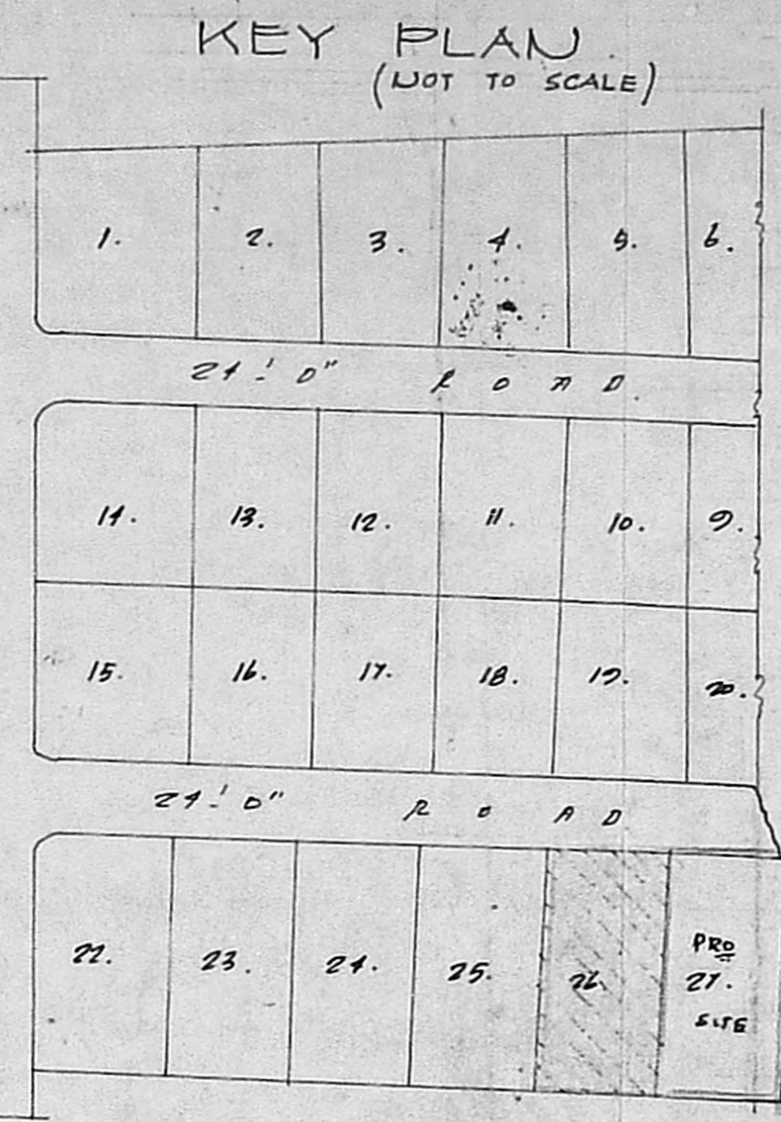 KEY PLAN
(NOT TO SCALE)
1. 2. 3. 4. 5. 6.
24'-0" ROAD.
14. 13. 12. 11. 10. 9.
15. 16. 17. 18. 19. 20.
24'-0" ROAD
22. 23. 24. 25. 26.
PRO
27.
SITE